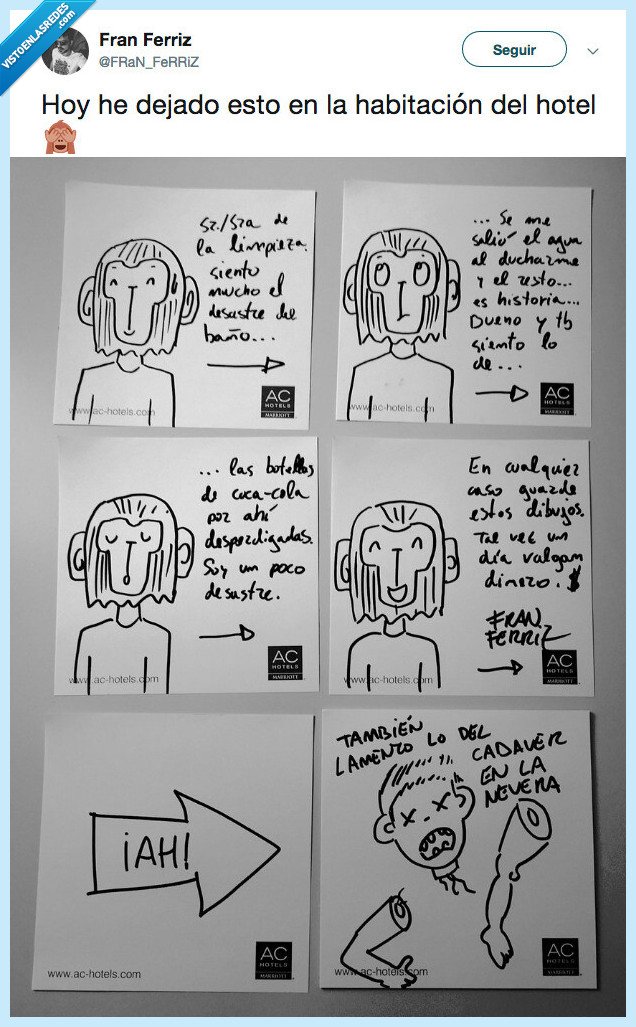 VISTOENLASREDES
.com
Fran Ferriz
@FRaN_FeRRiZ
Seguir
Hoy he dejado esto en la habitación del hotel
Sr./Sra de
la limpieza.
siento
mucho el
desastre del
baño...
www.ac-hotels.com
AC
HOTELS
MARRIOTT
... Se me
salió el agua
al ducharme
y el resto...
es historia...
Bueno y tb
siento lo
de...
www.ac-hotels.com
AC
HOTELS
MARRIOTT
... las botellas
de coca-cola
por ahí
desperdigadas.
Soy un poco
desastre.
www.ac-hotels.com
AC
HOTELS
MARRIOTT
En cualquier
caso guarde
estos dibujos.
Tal vez un
día valgan
dinero. $
FRAN
FERRIZ
www.ac-hotels.com
AC
HOTELS
MARRIOTT
¡AH!
www.ac-hotels.com
AC
HOTELS
MARRIOTT
TAMBIÉN
LAMENTO LO DEL
CADAVER
EN LA
NEVERA
www.ac-hotels.com
AC
HOTELS
MARRIOTT